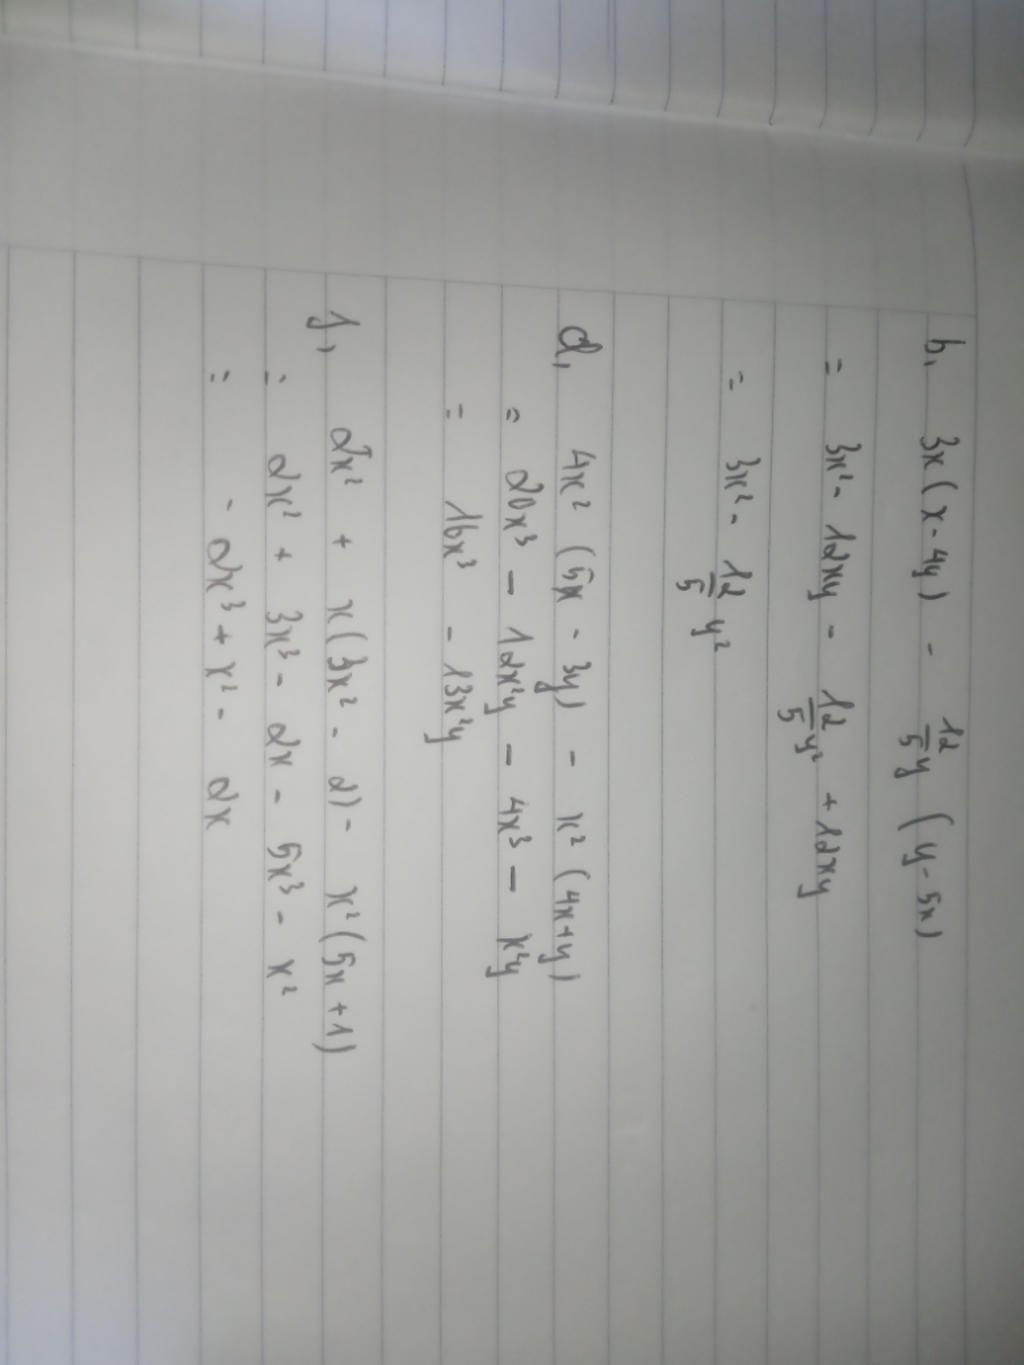 b, 3x(x-4y) - 12/5 y (y-5x)
= 3x² - 12xy - 12/5 y² + 12xy
= 3x² - 12/5 y²
d, 4x² (5x - 3y) - x² (4x+y)
= 20x³ - 12x²y - 4x³ - x²y
= 16x³ - 13x²y
f, 2x² + x(3x² - 2) - x²(5x+1)
= 2x² + 3x³ - 2x - 5x³ - x²
= - 2x³ + x² - 2x